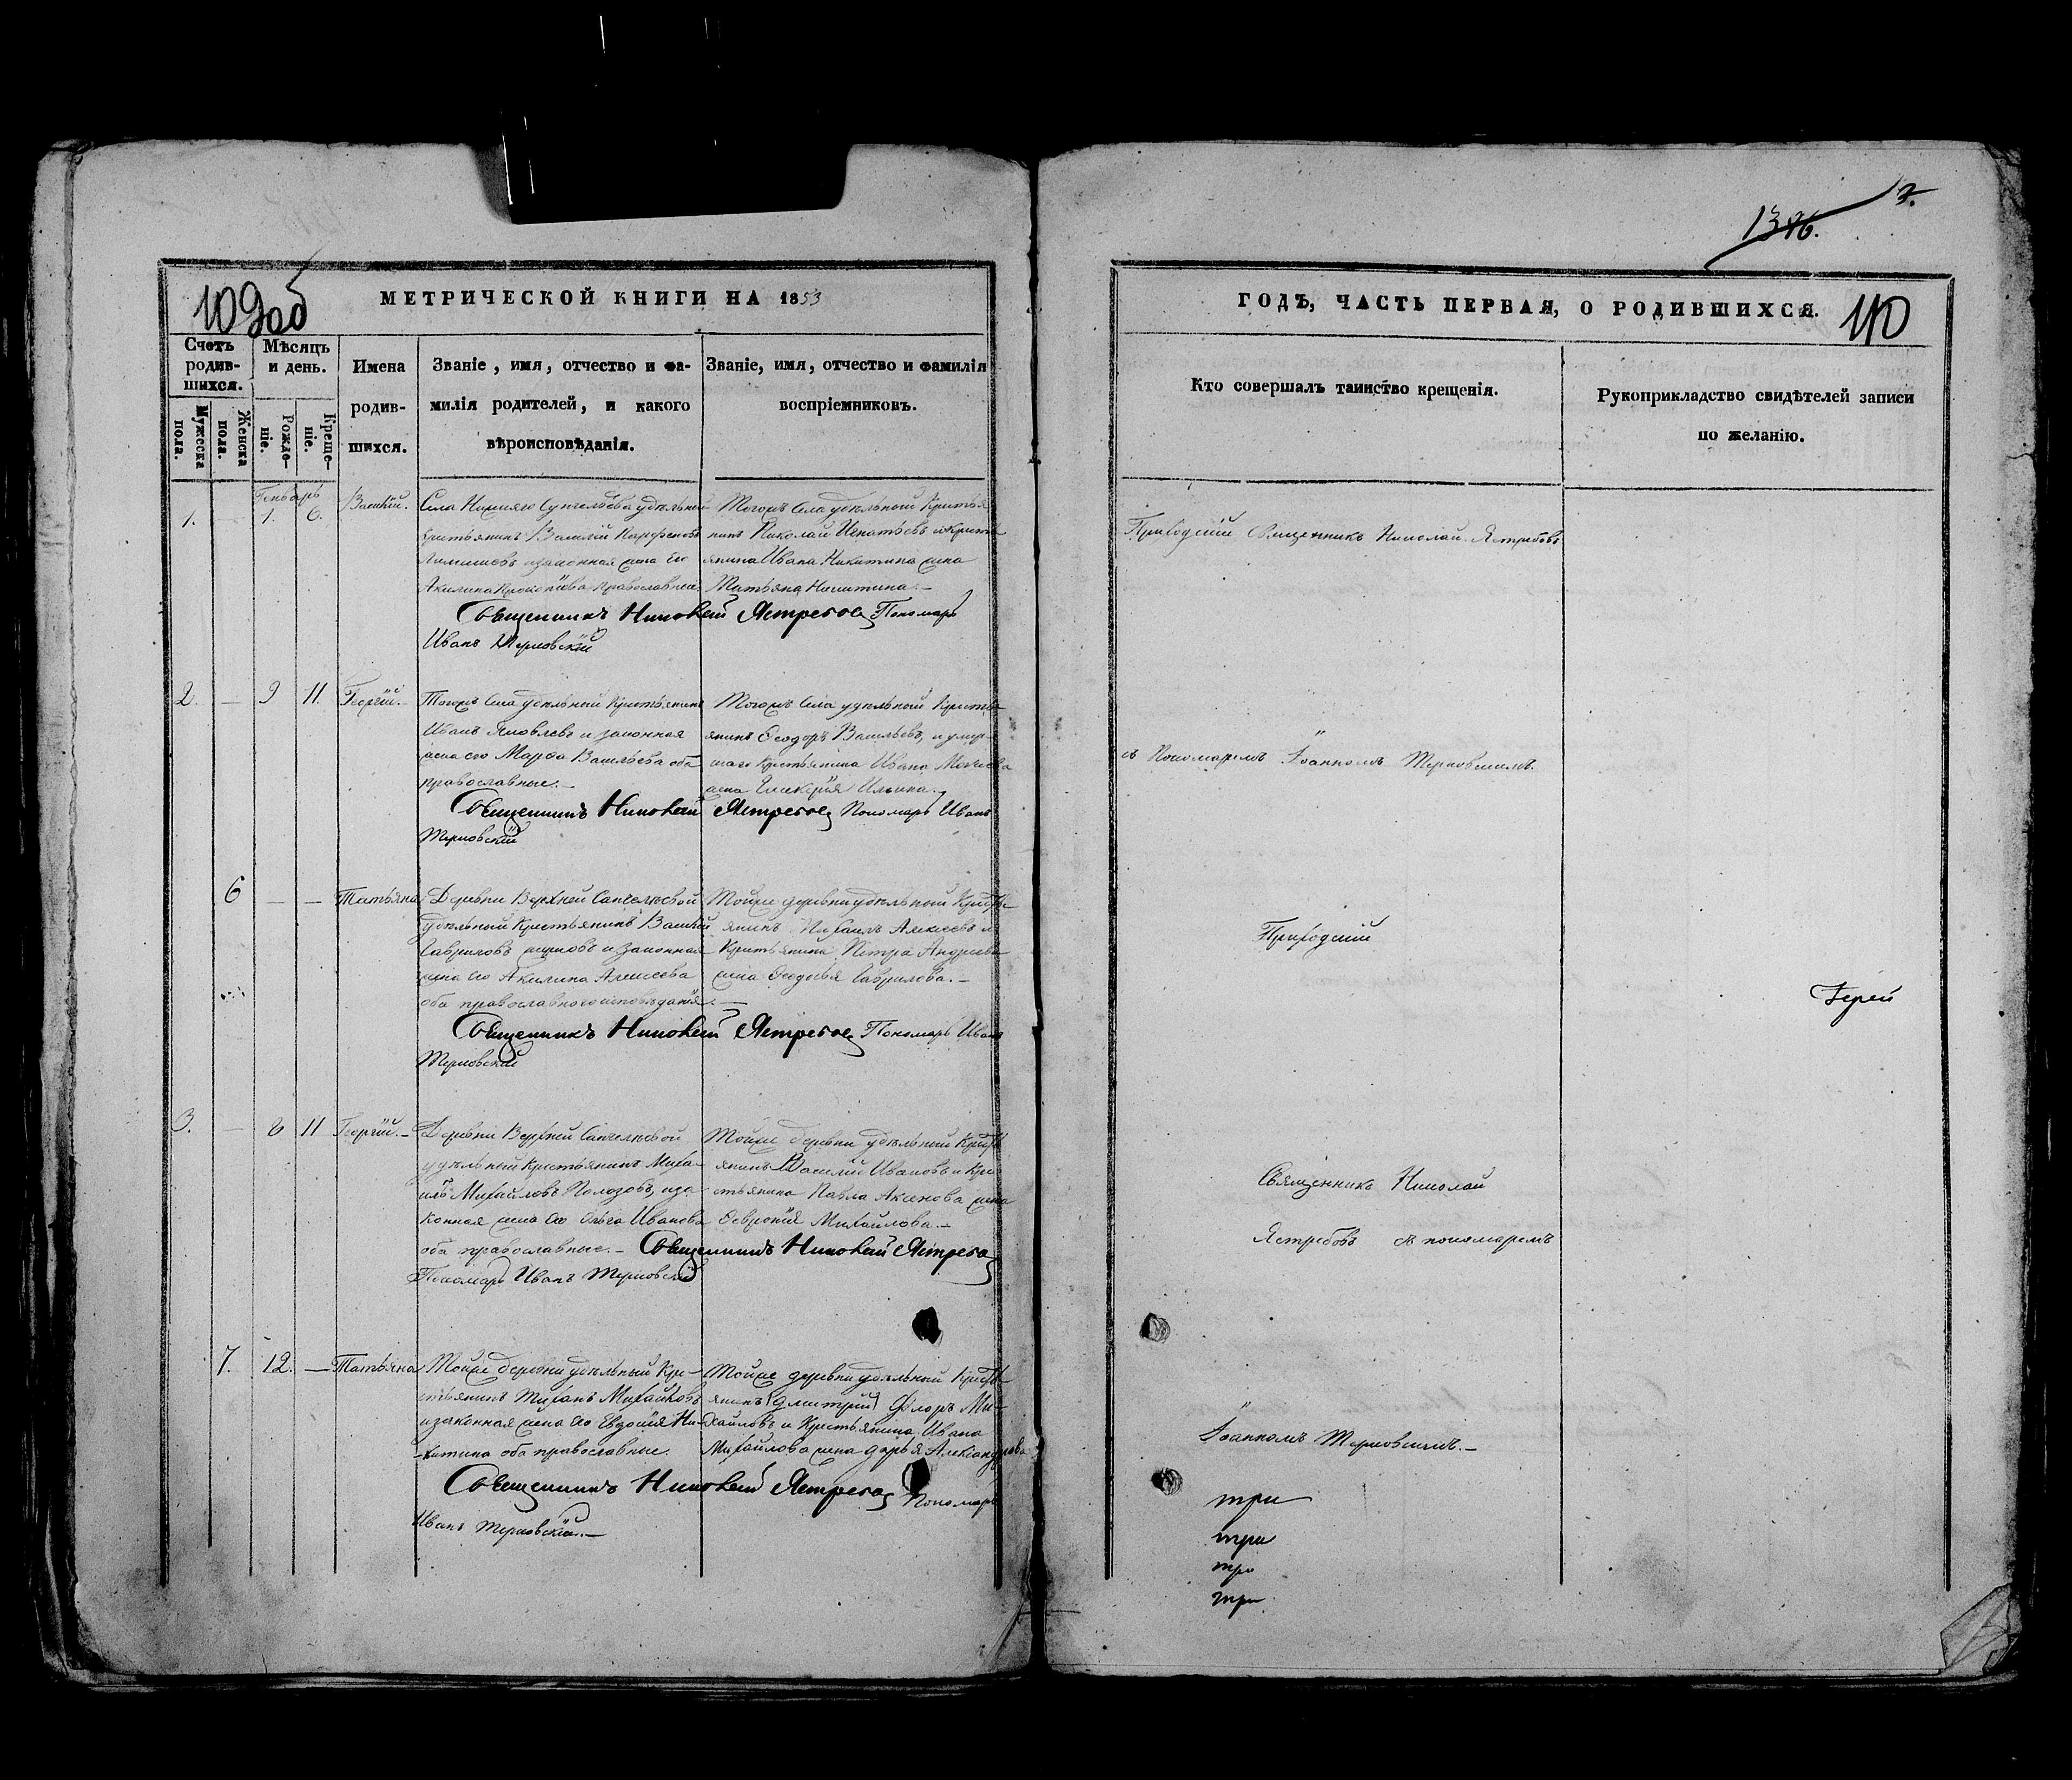 1396.
109об
МЕТРИЧЕСКОЙ КНИГИ НА 1853
Счетъ родив- шихся.
Мѣсяцъ и день.
Мужеска пола.
Женска пола.
Рожде- ніе.
Креще- ніе.
Имена родив- шихся.
Званіе, имя, отчество и фа-
милія родителей, и какого
вѣроисповѣданія.
Званіе, имя, отчество и фамилія
воспріемниковъ.
Генварь
1. 1. 6. Василій.
Села удѣльный
крестьянинъ Василій
законная жена его
Акилина православные
Тогожъ села удѣльный Крестья
нинъ Николай Игнатьевъ и Кресть
янина Ивана Никитина жена
Татьяна Никитина.—
Священникъ Николай Ястребов Пономарь
Иванъ Терновскій
2. — 9 11. Георгій.
Тогожъ села удѣльный Крестьянинъ
Иванъ Яковлевъ и законная
жена его Марѳа Васильева оба
православные.—
Тогожъ села удѣльный Крестья
янинъ Ѳеодоръ Васильевъ, и умер-
шаго Крестьянина Ивана
жена Гликерія Ильина.
Священникъ Николай Ястребов Пономарь Иванъ
Терновскій
6 — — Татьяна
Деревни Верхней
удѣльный Крестьянинъ Василій
Гавриловъ и законная
жена его Акилина Алексеева
оба православного исповѣданія.—
Тойже деревни удѣльный Кресть-
янинъ Михаилъ Алексеевъ и
Крестьянина Петра Андреева
жена Ѳеодосья Гаврилова.—
Священникъ Николай Ястребов Пономарь Иванъ
Терновскій
3. — 6 11 Георгій.—
Деревни Верхней
удѣльный Крестьянинъ Миха-
илъ Михайловъ Полозовъ, и за-
конная жена его Ольга Иванова
оба православные.—
Тойже деревни удѣльный Кресть
янинъ Василій Ивановъ и Кре-
стьянина Павла Аксенова жена
Ѳевронія Михайлова.—
Священникъ Николай Ястребов
Пономарь Иванъ Терновскій
7. 12. — Татьяна
Тойже деревни удѣльный Кре-
стьянинъ Михайловъ
и законная жена его Евдокія Ни-
китина оба православные.
Тойже деревни удѣльный Кресть-
янинъ (Дмитрій) Флоръ Ми-
хайловъ и Крестьянина Ивана
Михайлова жена Дарья Александрова
Священникъ Николай Ястребов Пономарь
Иванъ Терновскій.—
ГОДЪ, ЧАСТЬ ПЕРВАЯ, О РОДИВШИХСЯ.
110
Кто совершалъ таинство крещенія.
Рукоприкладство свидѣтелей записи
по желанію.
Приходскій Священникъ Николай Ястребовъ
съ Пономаремъ Іоанномъ Терновскимъ.
Приходскій
Іерей
Священникъ Николай
Ястребовъ съ пономаремъ
Іоанномъ Терновскимъ.—
три
три
три
три